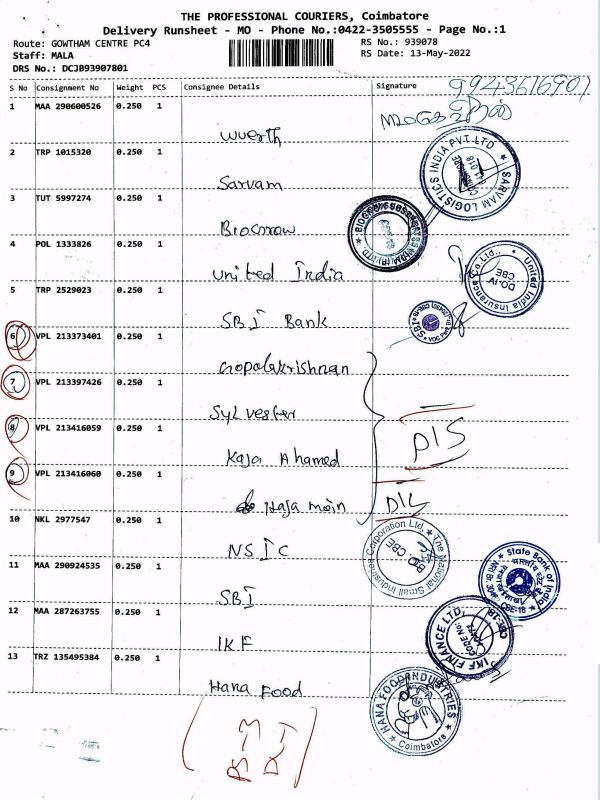 THE PROFESSIONAL COURIERS, Coimbatore
Delivery Runsheet - MO - Phone No.:0422-3505555 - Page No.:1
Route: GOWTHAM CENTRE PC4
RS No.: 939078
Staff: MALA
RS Date: 13-May-2022
DRS No.: DCJB93907801
S No Consignment No Weight PCS Consignee Details Signature
9943616901
1 MAA 290600526 0.250 1
Wuerth
2 TRP 1015320 0.250 1
Sarvam
SARVAM LOGISTICS INDIA PVT.LTD
3 TUT 5997274 0.250 1
4 POL 1333826 0.250 1
United India
United India Insurance Co Ltd.,
DO.IV
CBE
5 TRP 2529023 0.250 1
SBI Bank
6 VPL 213373401 0.250 1
Gopalakrishnan
7 VPL 213397426 0.250 1
Sylvester
8 VPL 213416059 0.250 1
Kaja Ahamed
D/S
9 VPL 213416060 0.250 1
Haja moin
D/L
10 NKL 2977547 0.250 1
NSIC
The National Small Industries Corporation Ltd.
CBE
11 MAA 290924535 0.250 1
SBI
State Bank of India
CBE-18
12 MAA 287263755 0.250 1
IKF
IKF FINANCE LTD,
CODE NO:
CBE-18
13 TRZ 135495384 0.250 1
Hana Food
HANA FOOD INDUSTRIES
Coimbatore